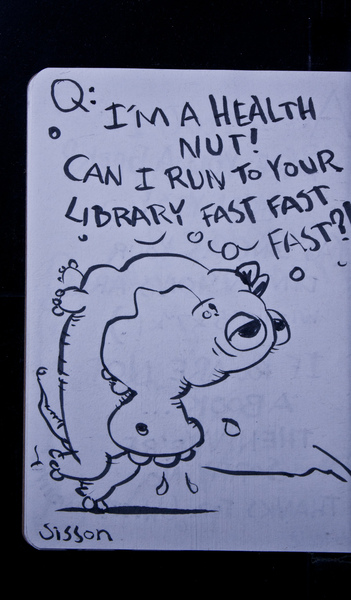 Q: I'M A HEALTH
NUT!
CAN I RUN TO YOUR
LIBRARY FAST FAST
FAST?!
Sisson